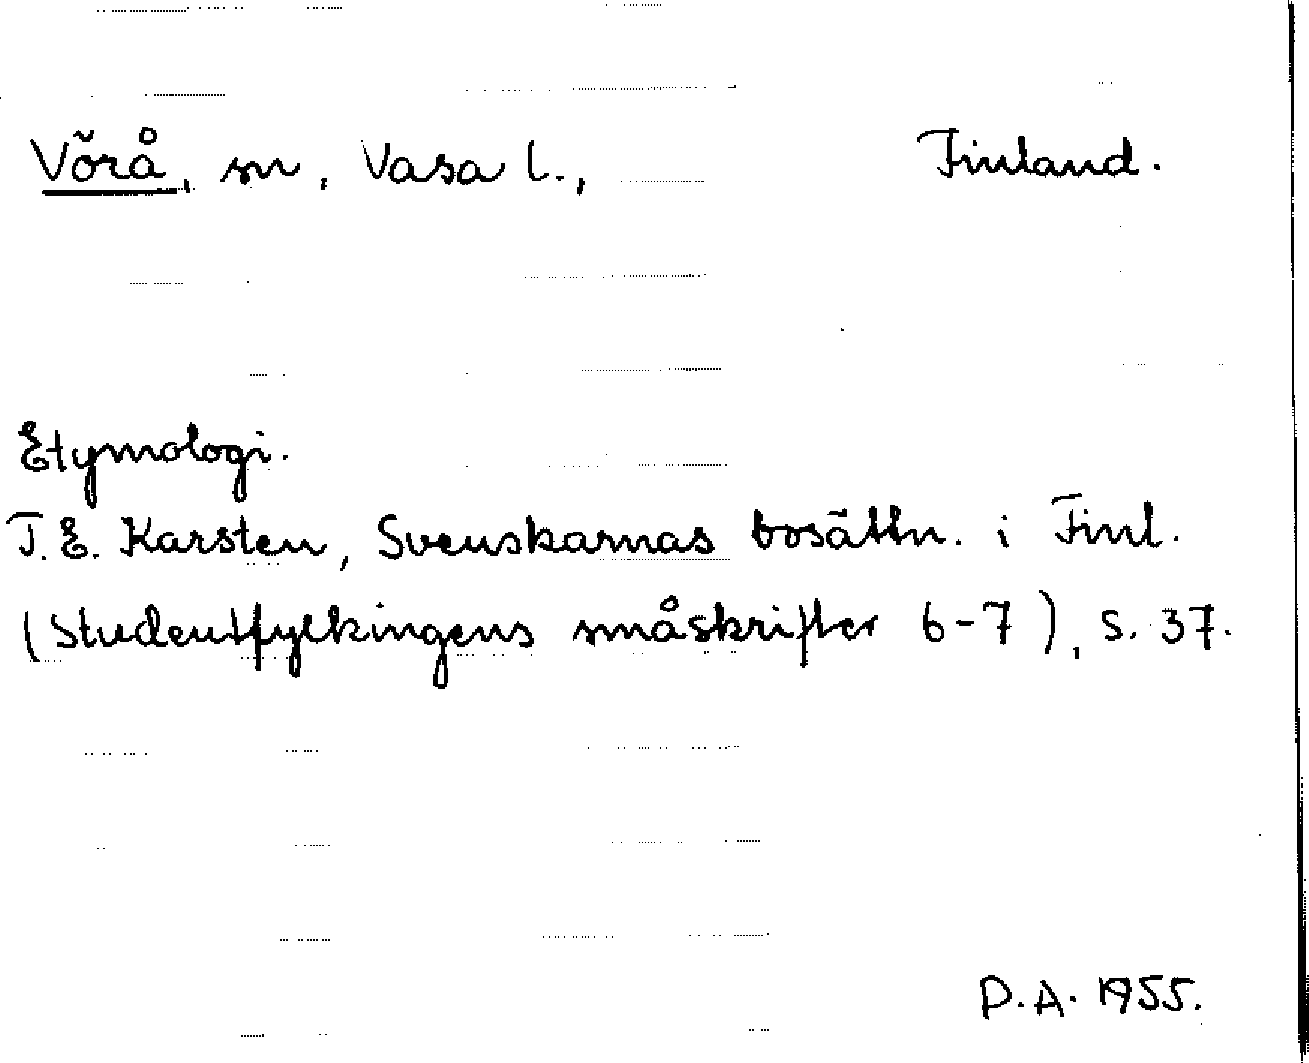 Vörå, sn, Vasa l., Finland.
Etymologi.
T. E. Karsten, Svenskarnas bosättn. i Finl.
(Studentfylkingens småskrifter 6-7), s. 37.
P.A. 1955.